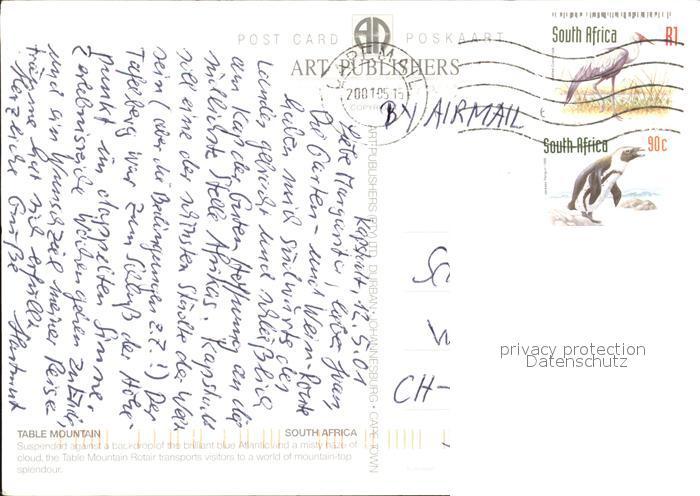 POST CARD AD POSKAART
ART PUBLISHERS
2001-05-15
BY AIRMAIL
South Africa R1
South Africa 90c
Kapstadt, 12.5.01
Liebe Margarita, lieber Franz
Die Garten- und Wein-Route
haben mich südwärts des
Landes geführt und schließlich
am Kap der Guten Hoffnung an die
südlichste Stelle Afrikas. Kapstadt
soll eine der schönsten Städte der Welt
sein (aber die Bedingungen z.Z.!) Der
Tafelberg war zum Schluß der Höhe-
punkt im doppelten Sinne.
2 erlebnisreiche Wochen gehen zu Ende,
und ein Wunschziel meiner Reise-
träume hat sich erfüllt.
Herzliche Grüße Hartmut
ART PUBLISHERS (PTY) LTD DURBAN • JOHANNESBURG • CAPE TOWN
CH-
privacy protection
Datenschutz
TABLE MOUNTAIN SOUTH AFRICA
Suspended against a backdrop of the brilliant blue Atlantic and a misty haze of
cloud, the Table Mountain Rotair transports visitors to a world of mountain-top
splendour.